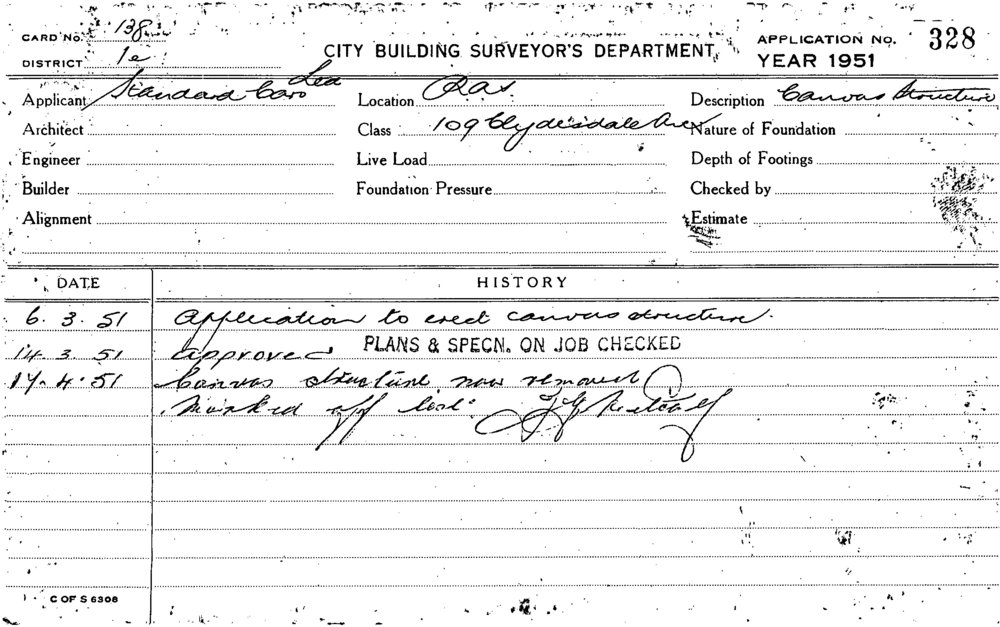 CARD No. 138
DISTRICT 1e
CITY BUILDING SURVEYOR'S DEPARTMENT,
APPLICATION No. 328
YEAR 1951
Applicant Standard Cars Ltd
Location RAS
Description Canvas Structure
Architect
Class 109 Clydesdale Ave
Nature of Foundation
Engineer
Live Load
Depth of Footings
Builder
Foundation Pressure
Checked by
Alignment
Estimate
DATE HISTORY
6. 3. 51 Application to erect canvas structure.
14. 3. 51 Approved PLANS & SPECN. ON JOB CHECKED
17. 4. 51 Canvas structure now removed
Marked off list.
C OF S 6308